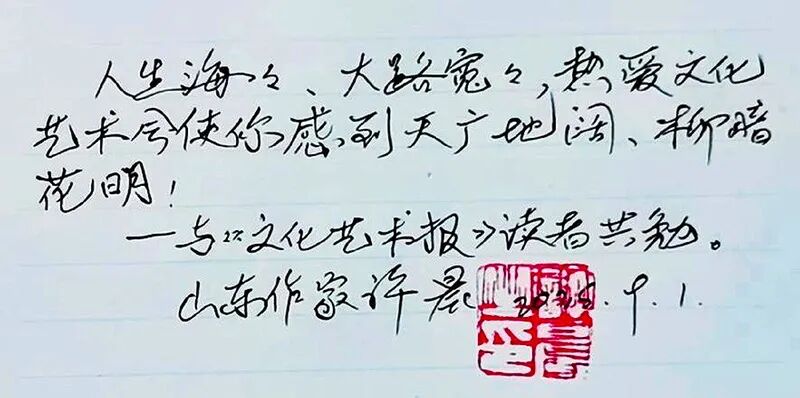 人生海々、大路宽々，热爱文化
艺术会使你感到天广地阔、柳暗
花明！
—与《文化艺术报》读者共勉。
山东作家许晨 9.1.